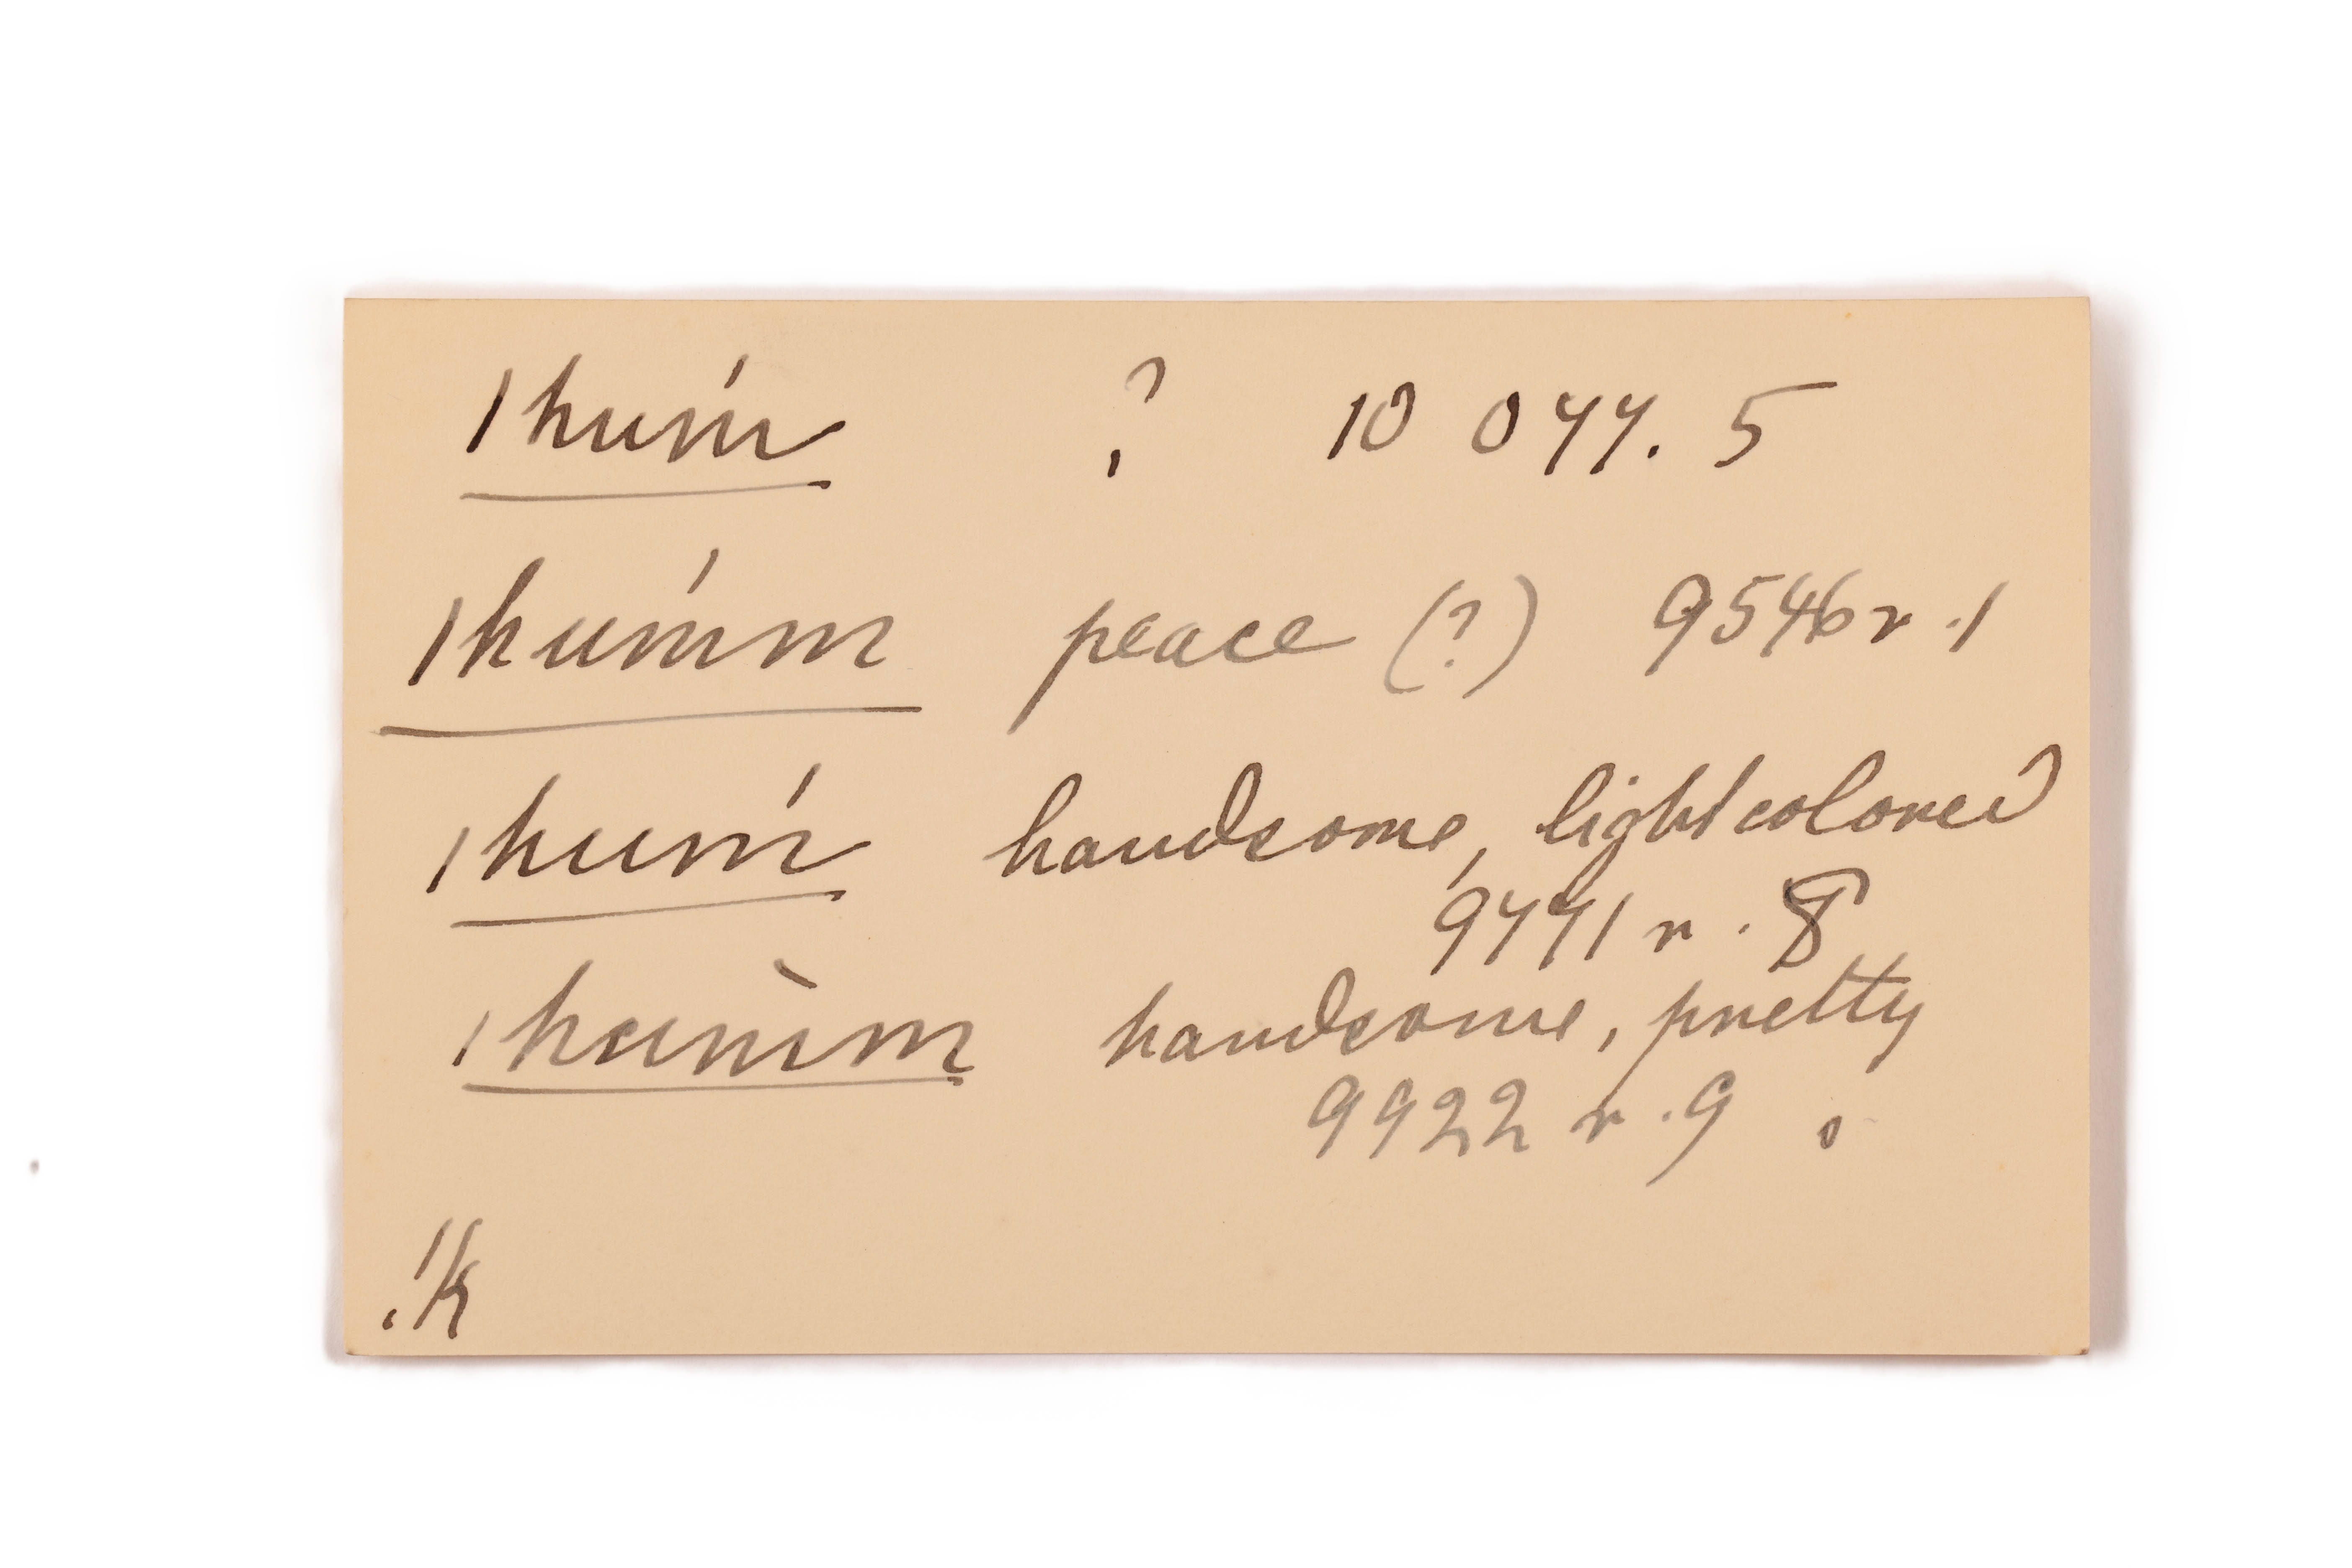 |huḿ ? 10 077. 5
|huḿm peace (?) 9546r.1
|huḿ handsome, lightcolored
9771 r. 8
|hum̀m handsome, pretty
9922 r.9
!k